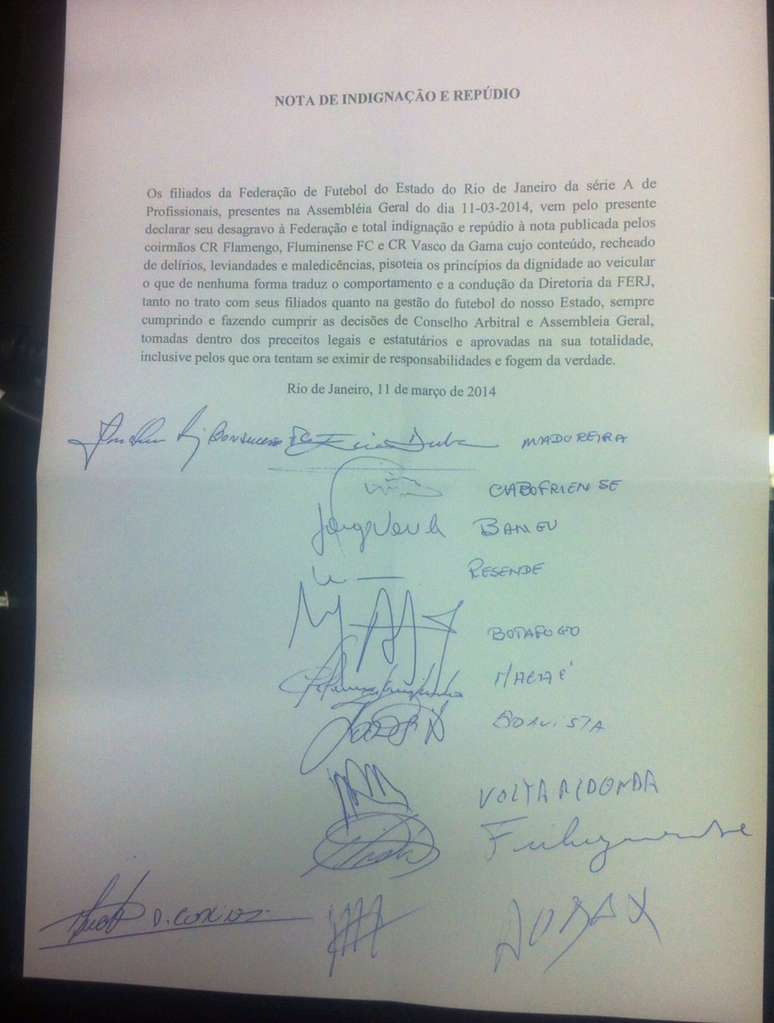 NOTA DE INDIGNAÇÃO E REPÚDIO
Os filiados da Federação de Futebol do Estado do Rio de Janeiro da série A de
Profissionais, presentes na Assembléia Geral do dia 11-03-2014, vem pelo presente
declarar seu desagravo à Federação e total indignação e repúdio à nota publicada pelos
coirmãos CR Flamengo, Fluminense FC e CR Vasco da Gama cujo conteúdo, recheado
de delírios, leviandades e maledicências, pisoteia os princípios da dignidade ao veicular
o que de nenhuma forma traduz o comportamento e a condução da Diretoria da FERJ,
tanto no trato com seus filiados quanto na gestão do futebol do nosso Estado, sempre
cumprindo e fazendo cumprir as decisões de Conselho Arbitral e Assembleia Geral,
tomadas dentro dos preceitos legais e estatutários e aprovadas na sua totalidade,
inclusive pelos que ora tentam se eximir de responsabilidades e fogem da verdade.
Rio de Janeiro, 11 de março de 2014
MADUREIRA
CABOFRIENSE
BANGU
RESENDE
BOTAFOGO
MACAÉ
BOAVISTA
VOLTA REDONDA
Friburguense
D. CAXIAS
AUDAX